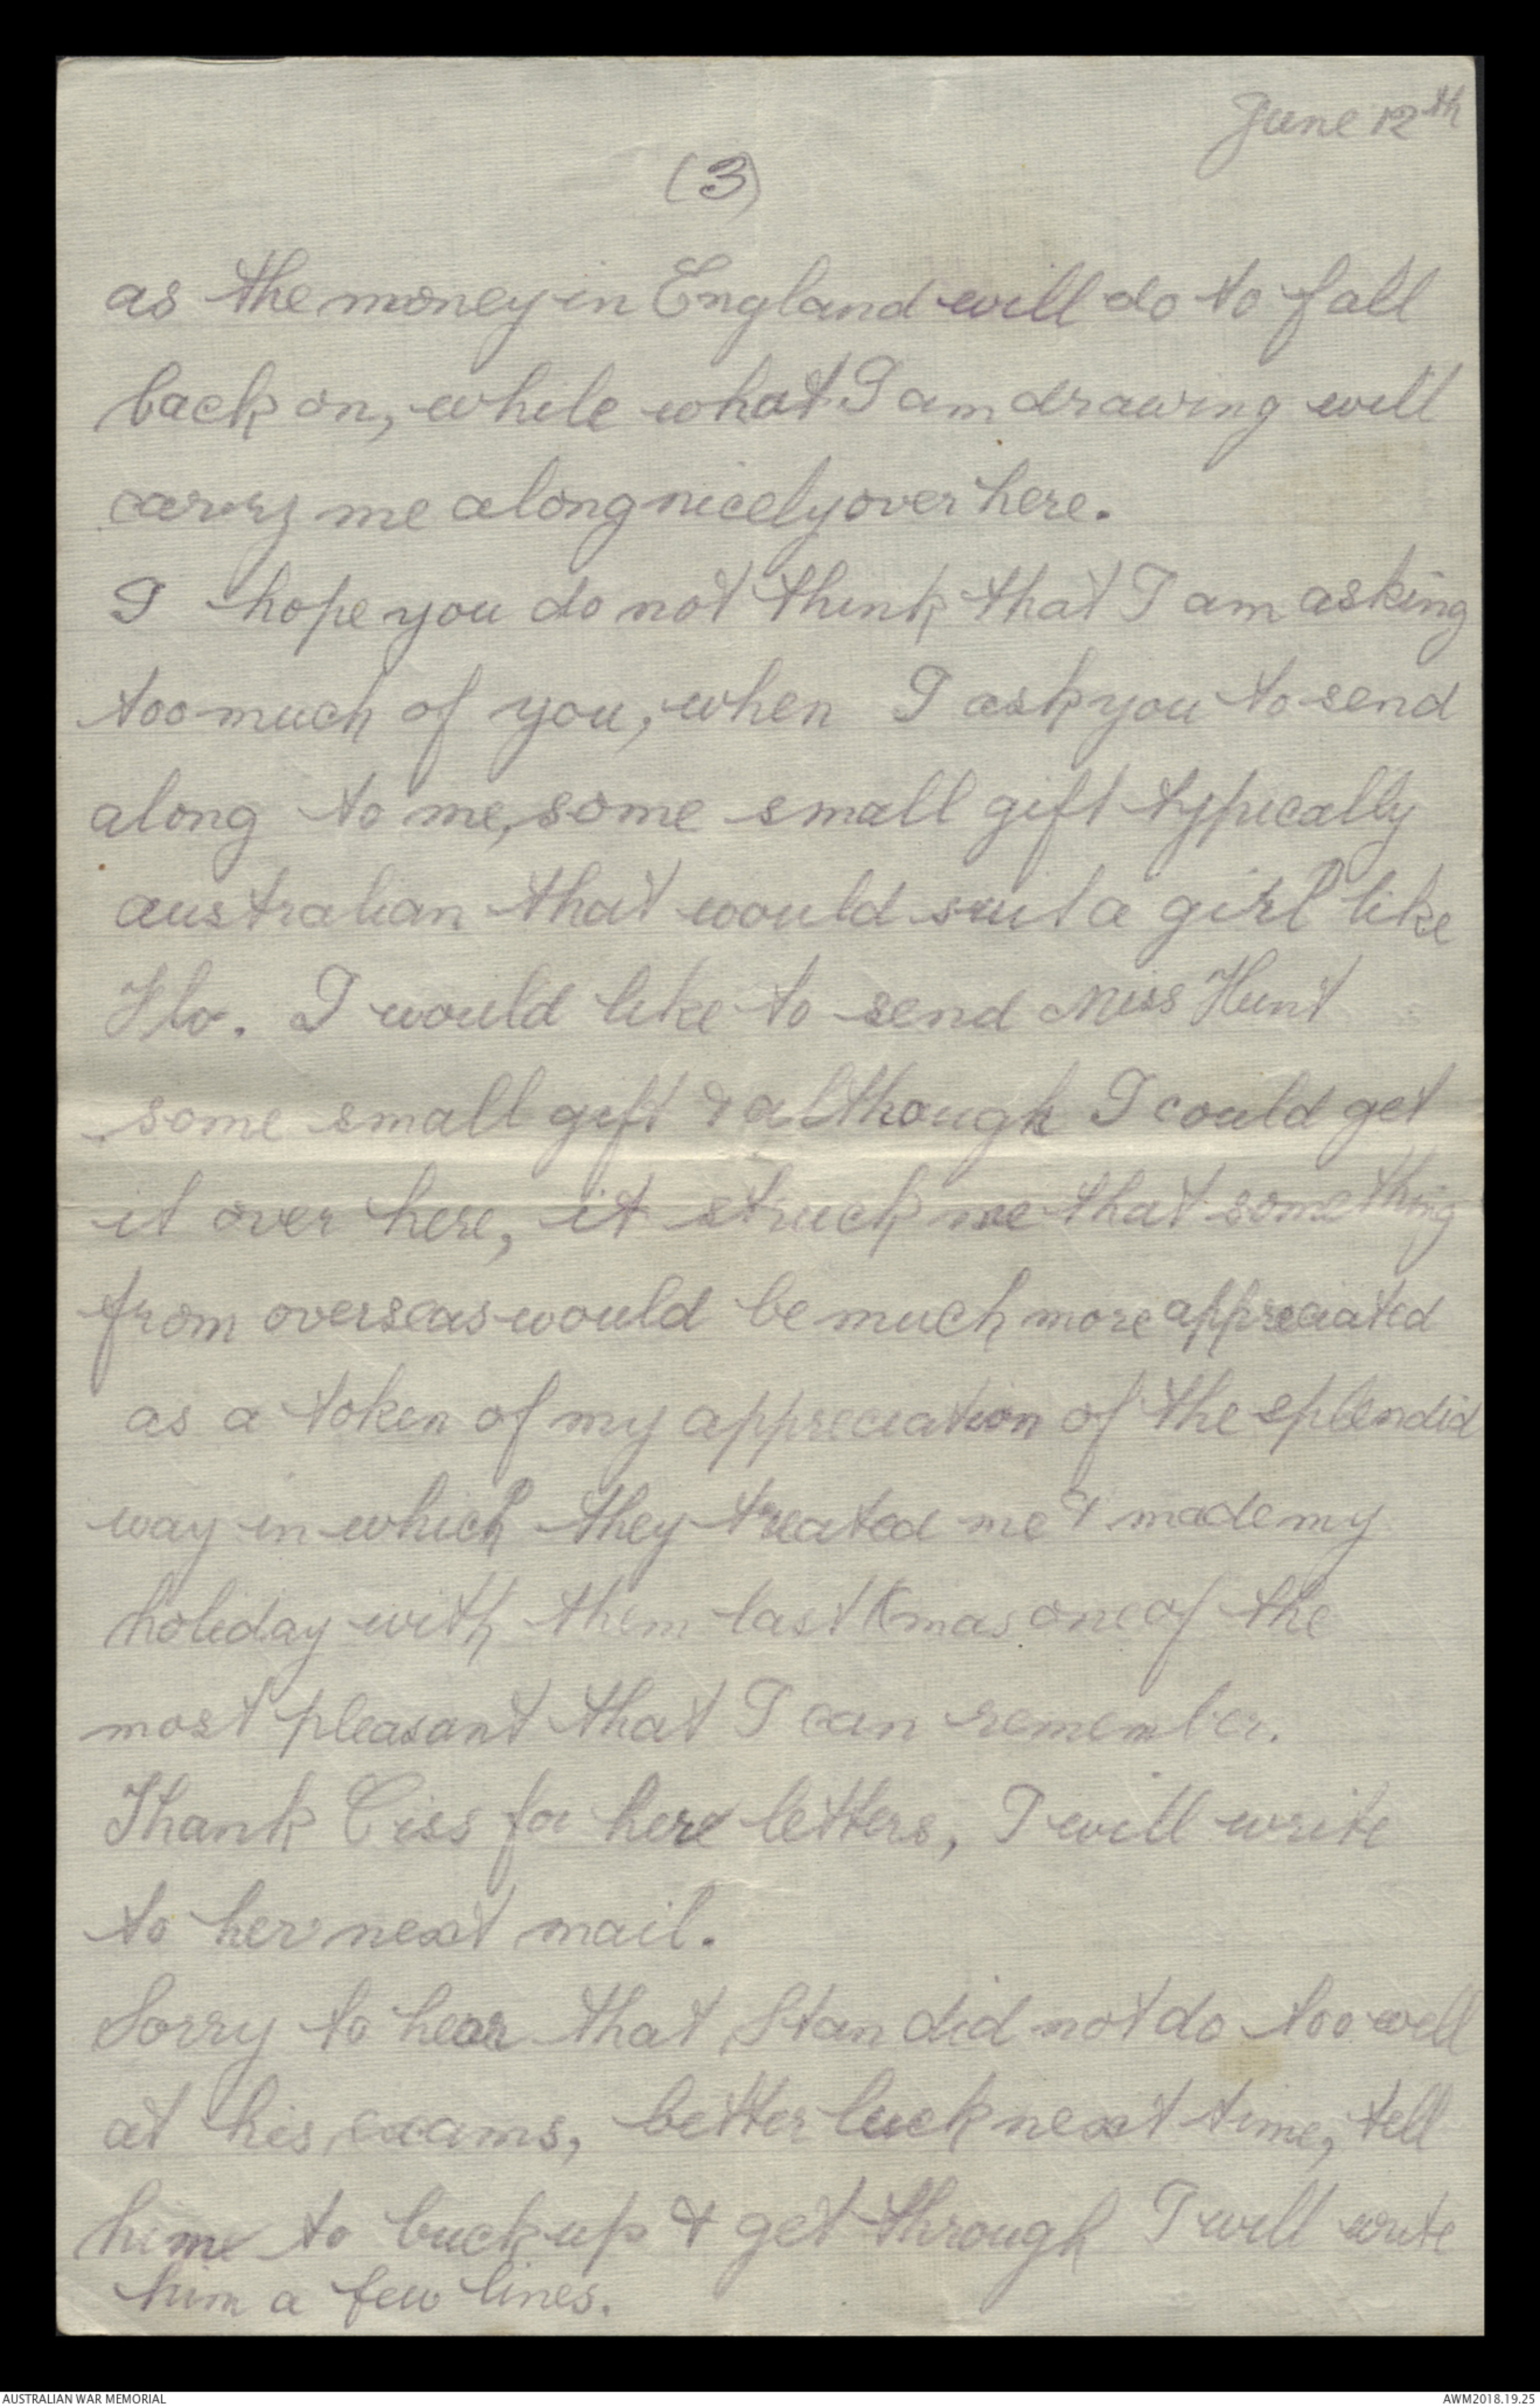 June 12th
(3)
as the money in England will do to fall
back on, while what I am drawing will
carry me along nicely over here.
I hope you do not think that I am asking
too much of you, when I ask you to send
along to me, some small gift typically
australian that would suit a girl like
Flo. I would like to send Miss Hunt
some small gift & although I could get
it over here, it struck me that something
from overseas would be much more appreciated
as a token of my appreciation of the splendid
way in which they treated me & made my
holiday with them last Xmas one of the
most pleasant that I can remember.
Thank Ciss for here letters, I will write
to her next mail.
Sorry to hear that Stan did not do too well
at his exams, better luck next time, tell
him to buck up & get through I will write
him a few lines.
AUSTRALIAN WAR MEMORIAL
AWM2018.19.25